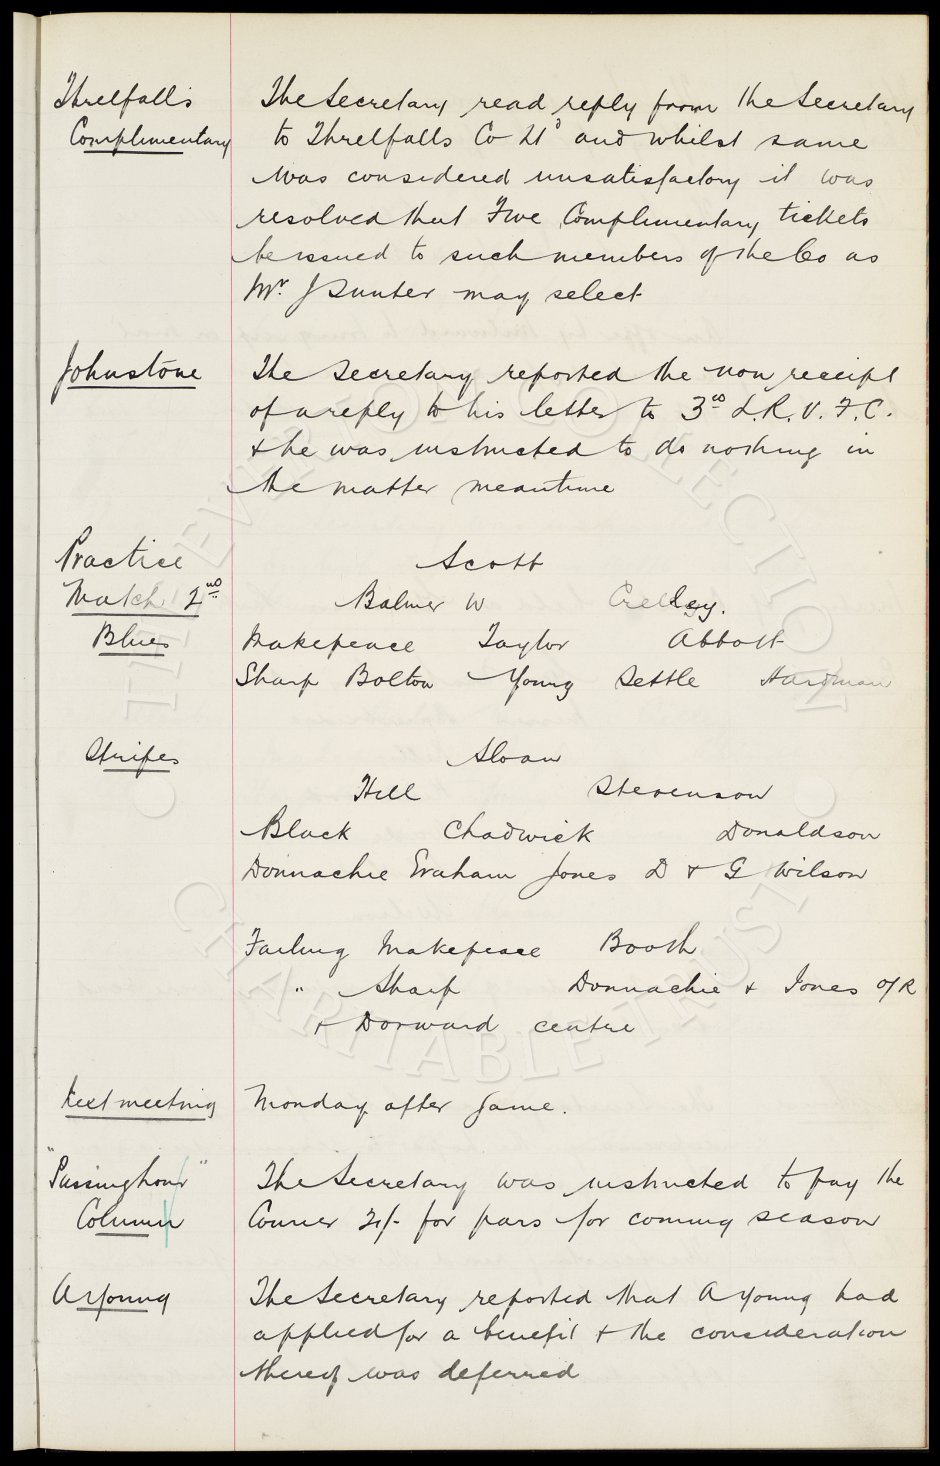 Threlfall's
Complimentary
The Secretary read reply from the Secretary
to Threlfalls Co Ltd and whilst same
was considered unsatisfactory it was
resolved that Five Complimentary tickets
be issued to such members of the Co as
Mr. J Bunter may select
Johnstone
The Secretary reported the non receipt
of a reply to his letter to 3rd L.R.V.F.C.
& he was instructed to do nothing in
the matter meantime
Practice
Match 2nd
Blues
Scott
Balmer W Crelley.
Makepeace Taylor Abbott
Sharp Bolton Young Settle Hardman
Stripes
Sloan
Hill Stevenson
Black Chadwick Donaldson
Donnachie Graham Jones D & G Wilson
Failing Makepeace Booth
" Sharp Donnachie & Jones O/R
& Dorward centre
Next meeting
Monday after Game.
"Passing hour"
Column
The Secretary was instructed to pay the
Courier for pars for coming season
A Young
The Secretary reported that A Young had
applied for a benefit & the consideration
thereof was deferred
THE EVERTON COLLECTION
CHARITABLE TRUST